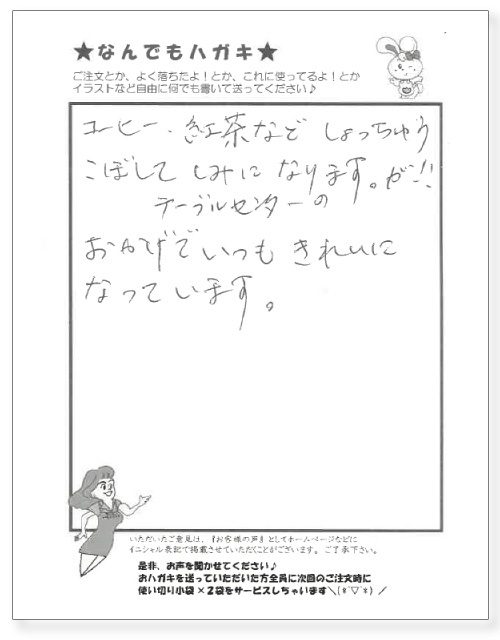 ★なんでもハガキ★
ご注文とか、よく落ちたよ！とか、これに使ってるよ！とか
イラストなど自由に何でも書いて送ってください♪
コーヒー、紅茶など しょっちゅう
こぼして しみに なります。が!!
テーブルセンターの
おかげで いつも きれいに
なって います。
いただいたご意見は、『お客様の声』としてホームページなどに
イニシャル表記で掲載させていただくことがございます。ご了承下さい。
是非、お声を聞かせてください♪
おハガキを送っていただいた方全員に次回のご注文時に
使い切り小袋×2袋をサービスしちゃいます＼(*´▽`*)／